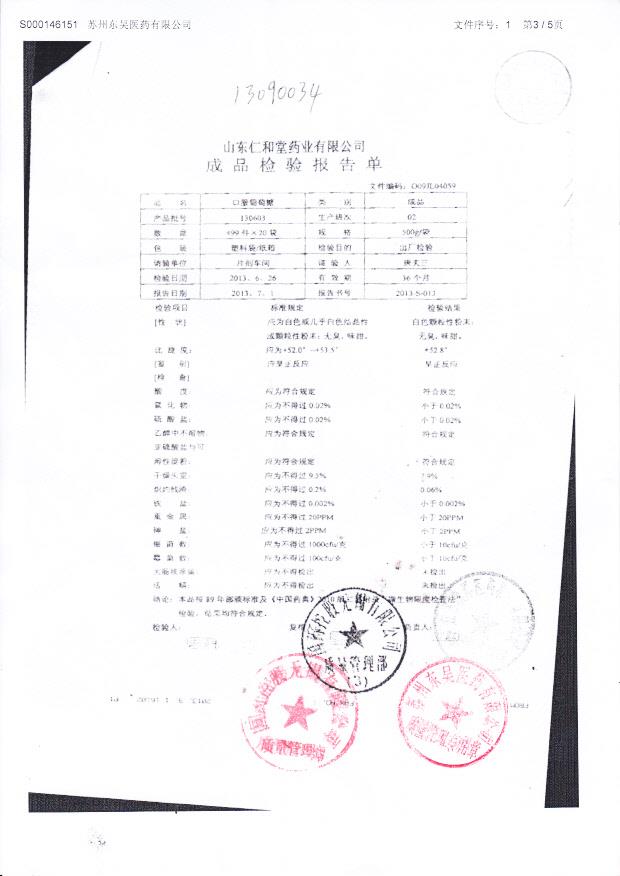 S000146151 苏州东吴医药有限公司 文件序号：1 第3/5页
13090034
山东仁和堂药业有限公司
成品检验报告单
文件编码：O09JL04059
品 名 口服葡萄糖 类 别 成品
产品批号 130603 生产班次 02
数 量 499件×20袋 规 格 500g/袋
包 装 塑料袋/纸箱 检验目的 出厂检验
请验单位 片剂车间 请 验 人
检验日期 2013．6．26 有 效 期 36个月
报告日期 2013．7．1 报告书号 2013-S-013
检验项目 标准规定 检验结果
[性 状] 应为白色或几乎白色结晶性 白色颗粒性粉末；
或颗粒性粉末；无臭，味甜。 无臭，味甜。
比 旋 度： 应为+52.0°~+53.5° +52.8°
[鉴 别] 应呈正反应 呈正反应
[检 查]
酸 度： 应为符合规定 符合规定
氯 化 物： 应为不得过 0.02% 小于 0.02%
硫 酸 盐： 应为不得过 0.02% 小于 0.02%
乙醇中不溶物： 应为符合规定 符合规定
亚硫酸盐与可
溶性淀粉： 应为符合规定 符合规定
干燥失重： 应为不得过 9.5%
炽灼残渣： 应为不得过 0.2% 0.06%
铁 盐： 应为不得过 0.002% 小于 0.002%
重 金 属： 应为不得过 20PPM 小于 20PPM
砷 盐： 应为不得过 2PPM 小于 2PPM
细 菌 数： 应为不得过 1000cfu/克 小于 10cfu/克
霉 菌 数： 应为不得过 100cfu/克 小于 10cfu/克
大肠埃希菌： 应为不得检出 未检出
活 螨： 应为不得检出 未检出
结论：本品按 89 年部颁标准及《中国药典》2010 微生物限度检查法"
检验，结果均符合规定。
检验人： 复核 负责人：
国药控股无锡有限公司
质量管理部
(3)
国药控股无锡有限公司
质量管理部
苏州东吴医药有限公司